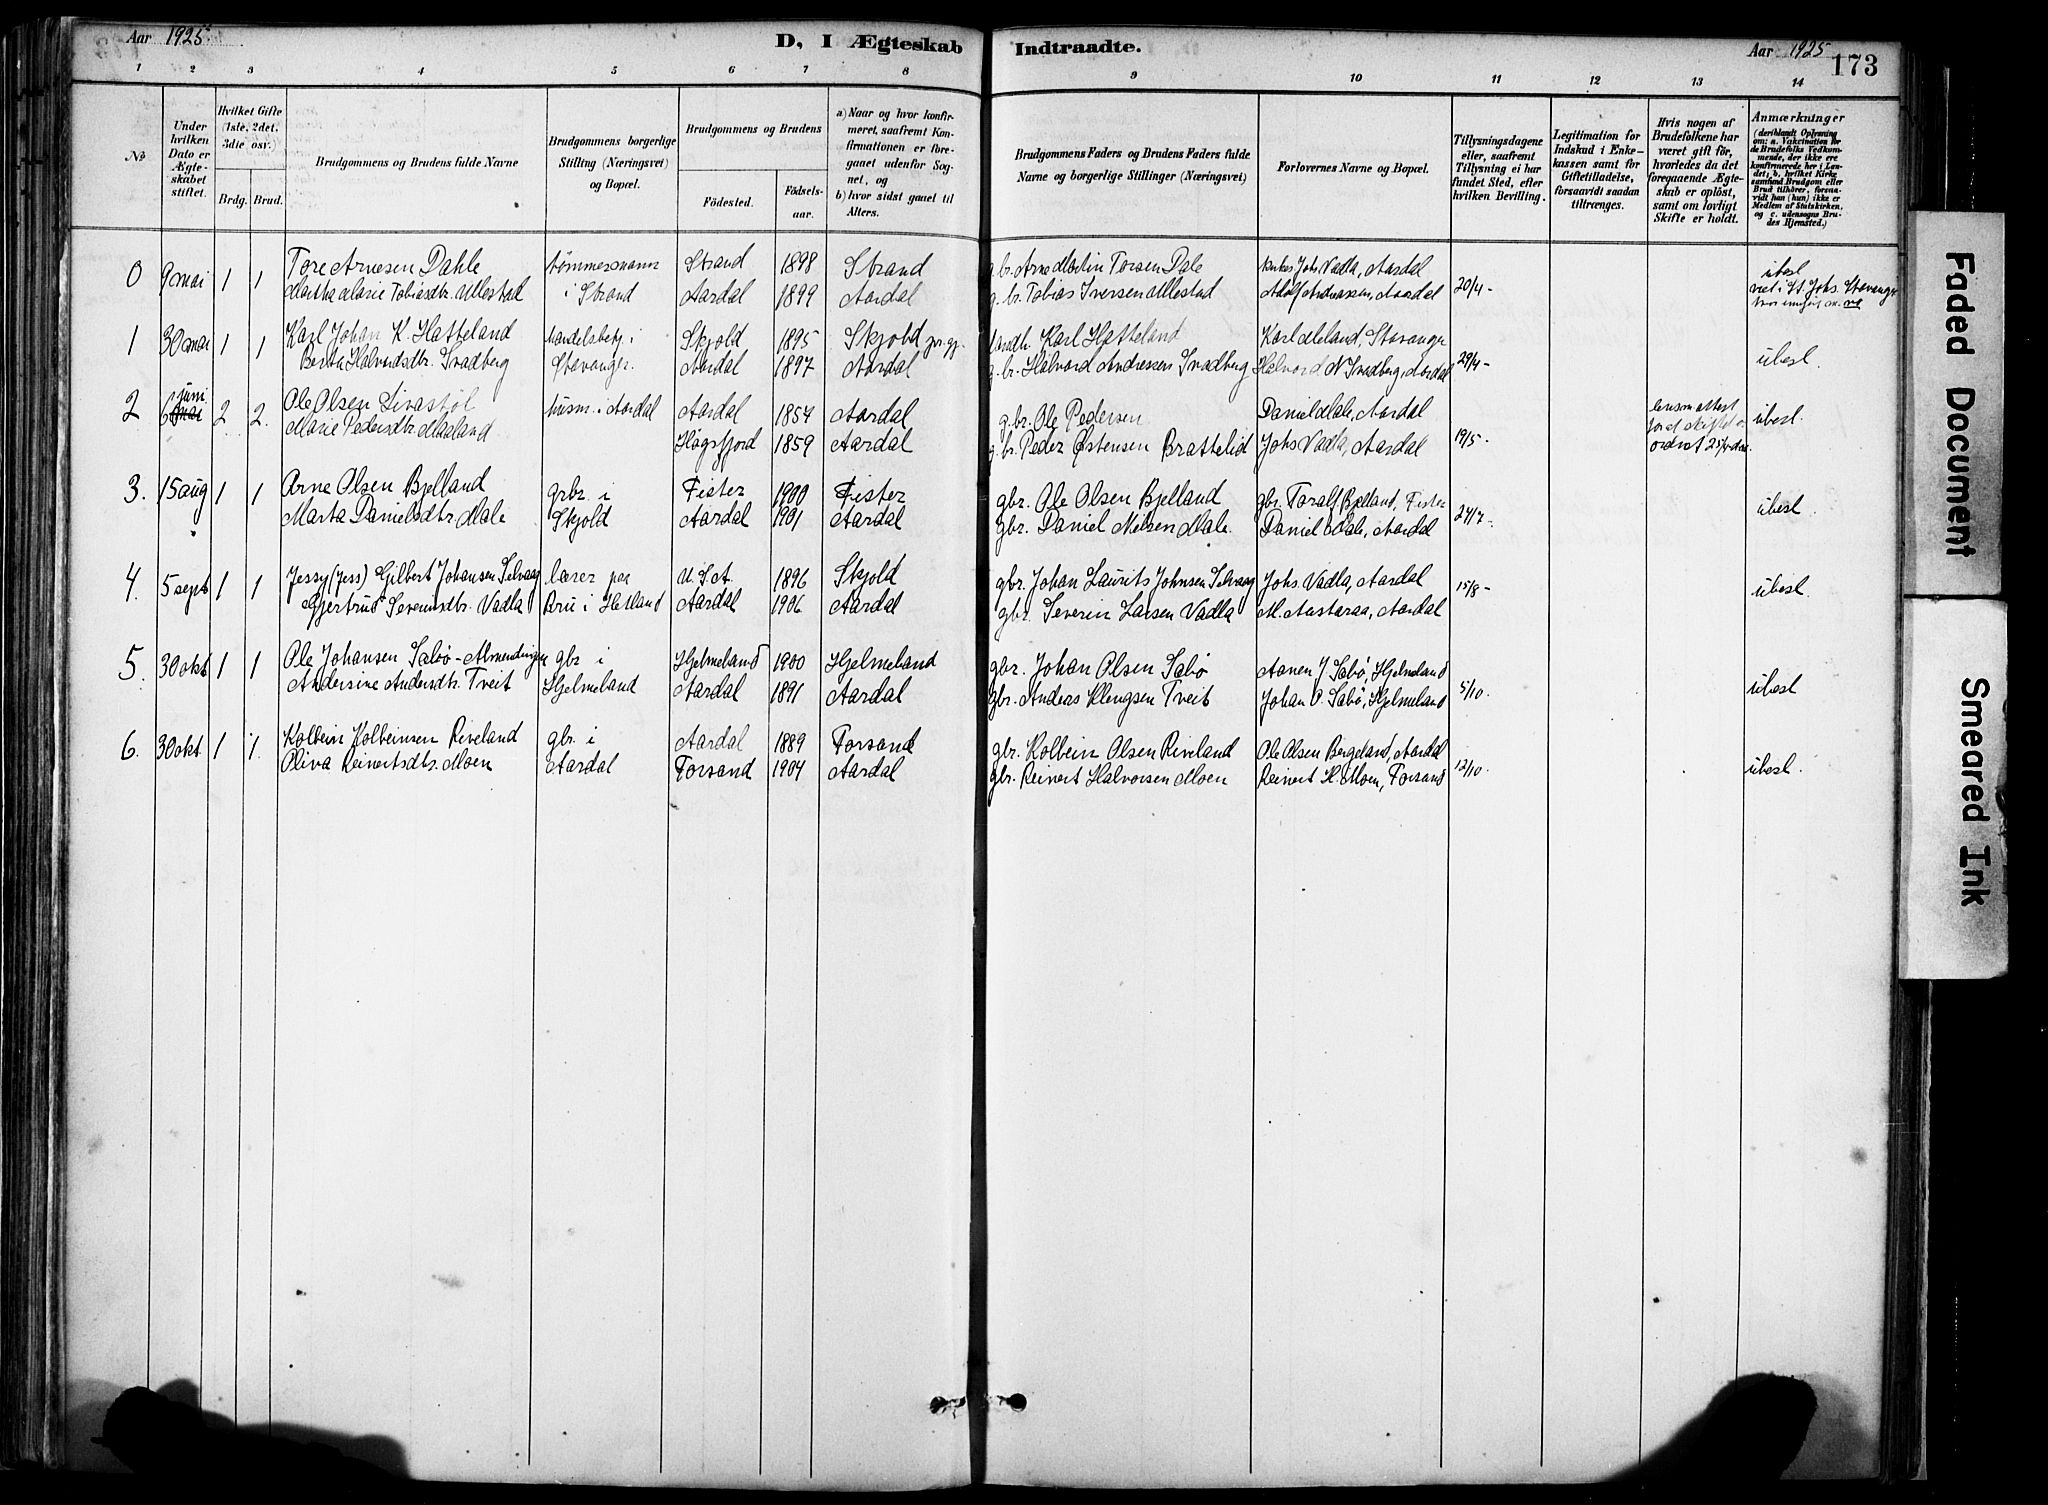 Aar 1925.
D, I Ægteskab Indtraadte.
Aar 1925
173
1 2 3 4 5 6 7 8 9 10 11 12 13 14
No
Under hvilken Dato er Ægteskabet stiftet.
Hvilket Gifte (1ste, 2det, 3die osv.)
Brdg. Brud.
Brudgommens og Brudens fulde Navne
Brudgommens borgerlige Stilling (Næringsvei) og Bopæl.
Brudgommens og Brudens
Födested.
Födsels-aar.
a) Naar og hvor konfirmeret, saafremt Konfirmationen er foregaaet udenfor Sognet, og
b) hvor sidst gaaet til Alters.
Brudgommens Faders og Brudens Faders fulde Navne og borgerlige Stillinger (Næringsvei)
Forlovernes Navne og Bopæl.
Tillysningsdagene eller, saafremt Tillysning ei har fundet Sted, efter hvilken Bevilling.
Legitimation for Indskud i Enkekassen samt for Giftetilladelse, forsaavidt saadan tiltrænges.
Hvis nogen af Brudefolkene har været gift før, hvorledes da det foregaaende Ægteskab er oplöst, samt om lovligt Skifte er holdt.
Anmærkninger (deriblandt Oplysning om: a. Vakcination for de Brudefolks Vedkommende, der ikke ere konfirmerede her i Landet; b. hvilket Kirkesamfund Brudgom eller Brud tilhører, forsaavidt han (hun) ikke er Medlem af Statskirken, og c. udensogns Brudes Hjemsted.)
0 9 mai 1 1 Tore Arnesen Dahle tømmermann Strand 1898 Strand g.br. Arne Martin Torsen Dale Johs Vadla, Aardal ubesl
Martha Marie Tobiasdtr. Ullestad i Strand Aardal 1899 Aardal g.br. Tobias Iversen Ullestad Adolf Andreassen, Aardal 20/4 - viet i St. Johs. Stavanger
1 30 mai 1 1 Karl Johan K. Hatteland handelsbetj. i Skjold 1895 Skjold Karl Hatteland Karl Meland, Stavanger
Berta Halvordsdtr. Svadberg Stavanger. Aardal 1897 Aardal g.br. Halvord Andreassen Svadberg Halvord N Svadberg, Aardal 29/4 - ubesl.
juni
2 6 mai 2. 2. Ole Olsen Livastøl husm. i Aardal Aardal 1854 Aardal g.br. Ole Pedersen Daniel Male, Aardal ubesl.
Marie Pedersdtr. Maaland Høgsfjord 1859 Aardal g.br. Peder Østensen Brattelid Johs Vadla, Aardal 19/5.
3. 15 aug 1 1 Arne Olsen Bjelland grbr. i Fister 1900 Fister gbr. Ole Olsen Bjelland gbr. Toralf Bjelland, Fister
Marta Danielsdtr. Male Skjold Aardal 1901 Aardal gbr. Daniel Nelsen Male. Daniel Male, Aardal 24/7. ubesl.
4. 5 sept 1 1 Jessy (Jess) Gilbert Johansen Selvaag lærer paa U.S.A. 1896 Skjold gbr. Johan Laurits Johnsen Selvaag Johs. Vadla, Aardal 15/8 - ubesl.
Gjertrud Severinsdtr. Vadla Bru i Hetland Aardal 1906 Aardal gbr. Severin Larsen Vadla M. Austaraa, Aardal
5. 30 okt 1 1 Ole Johansen Sabø - Almendingen gbr i Hjelmeland 1900 Hjelmeland gbr. Johan Olsen Sabø Aanen J Sabø, Hjelmeland
Andersine Andersdtr. Tveit Hjelmeland Aardal 1891 Aardal gbr. Andeas Klengsen Tveit Johan O. Sabø, Hjelmeland 5/10. ubesl
6. 30 okt. 1 1. Kolbein Kolbeinsen Riveland gbr. i Aardal 1889 Forsand gbr. Kolbein Olsen Riveland Ole Olsen Bergeland, Aardal
Oliva Reinertsdtr. Moen Aardal Forsand 1904 Aardal gbr. Reinert Halvorsen Moen Reinert H. Moen, Forsand 12/10. ubesl.
Faded Document
Smeared Ink